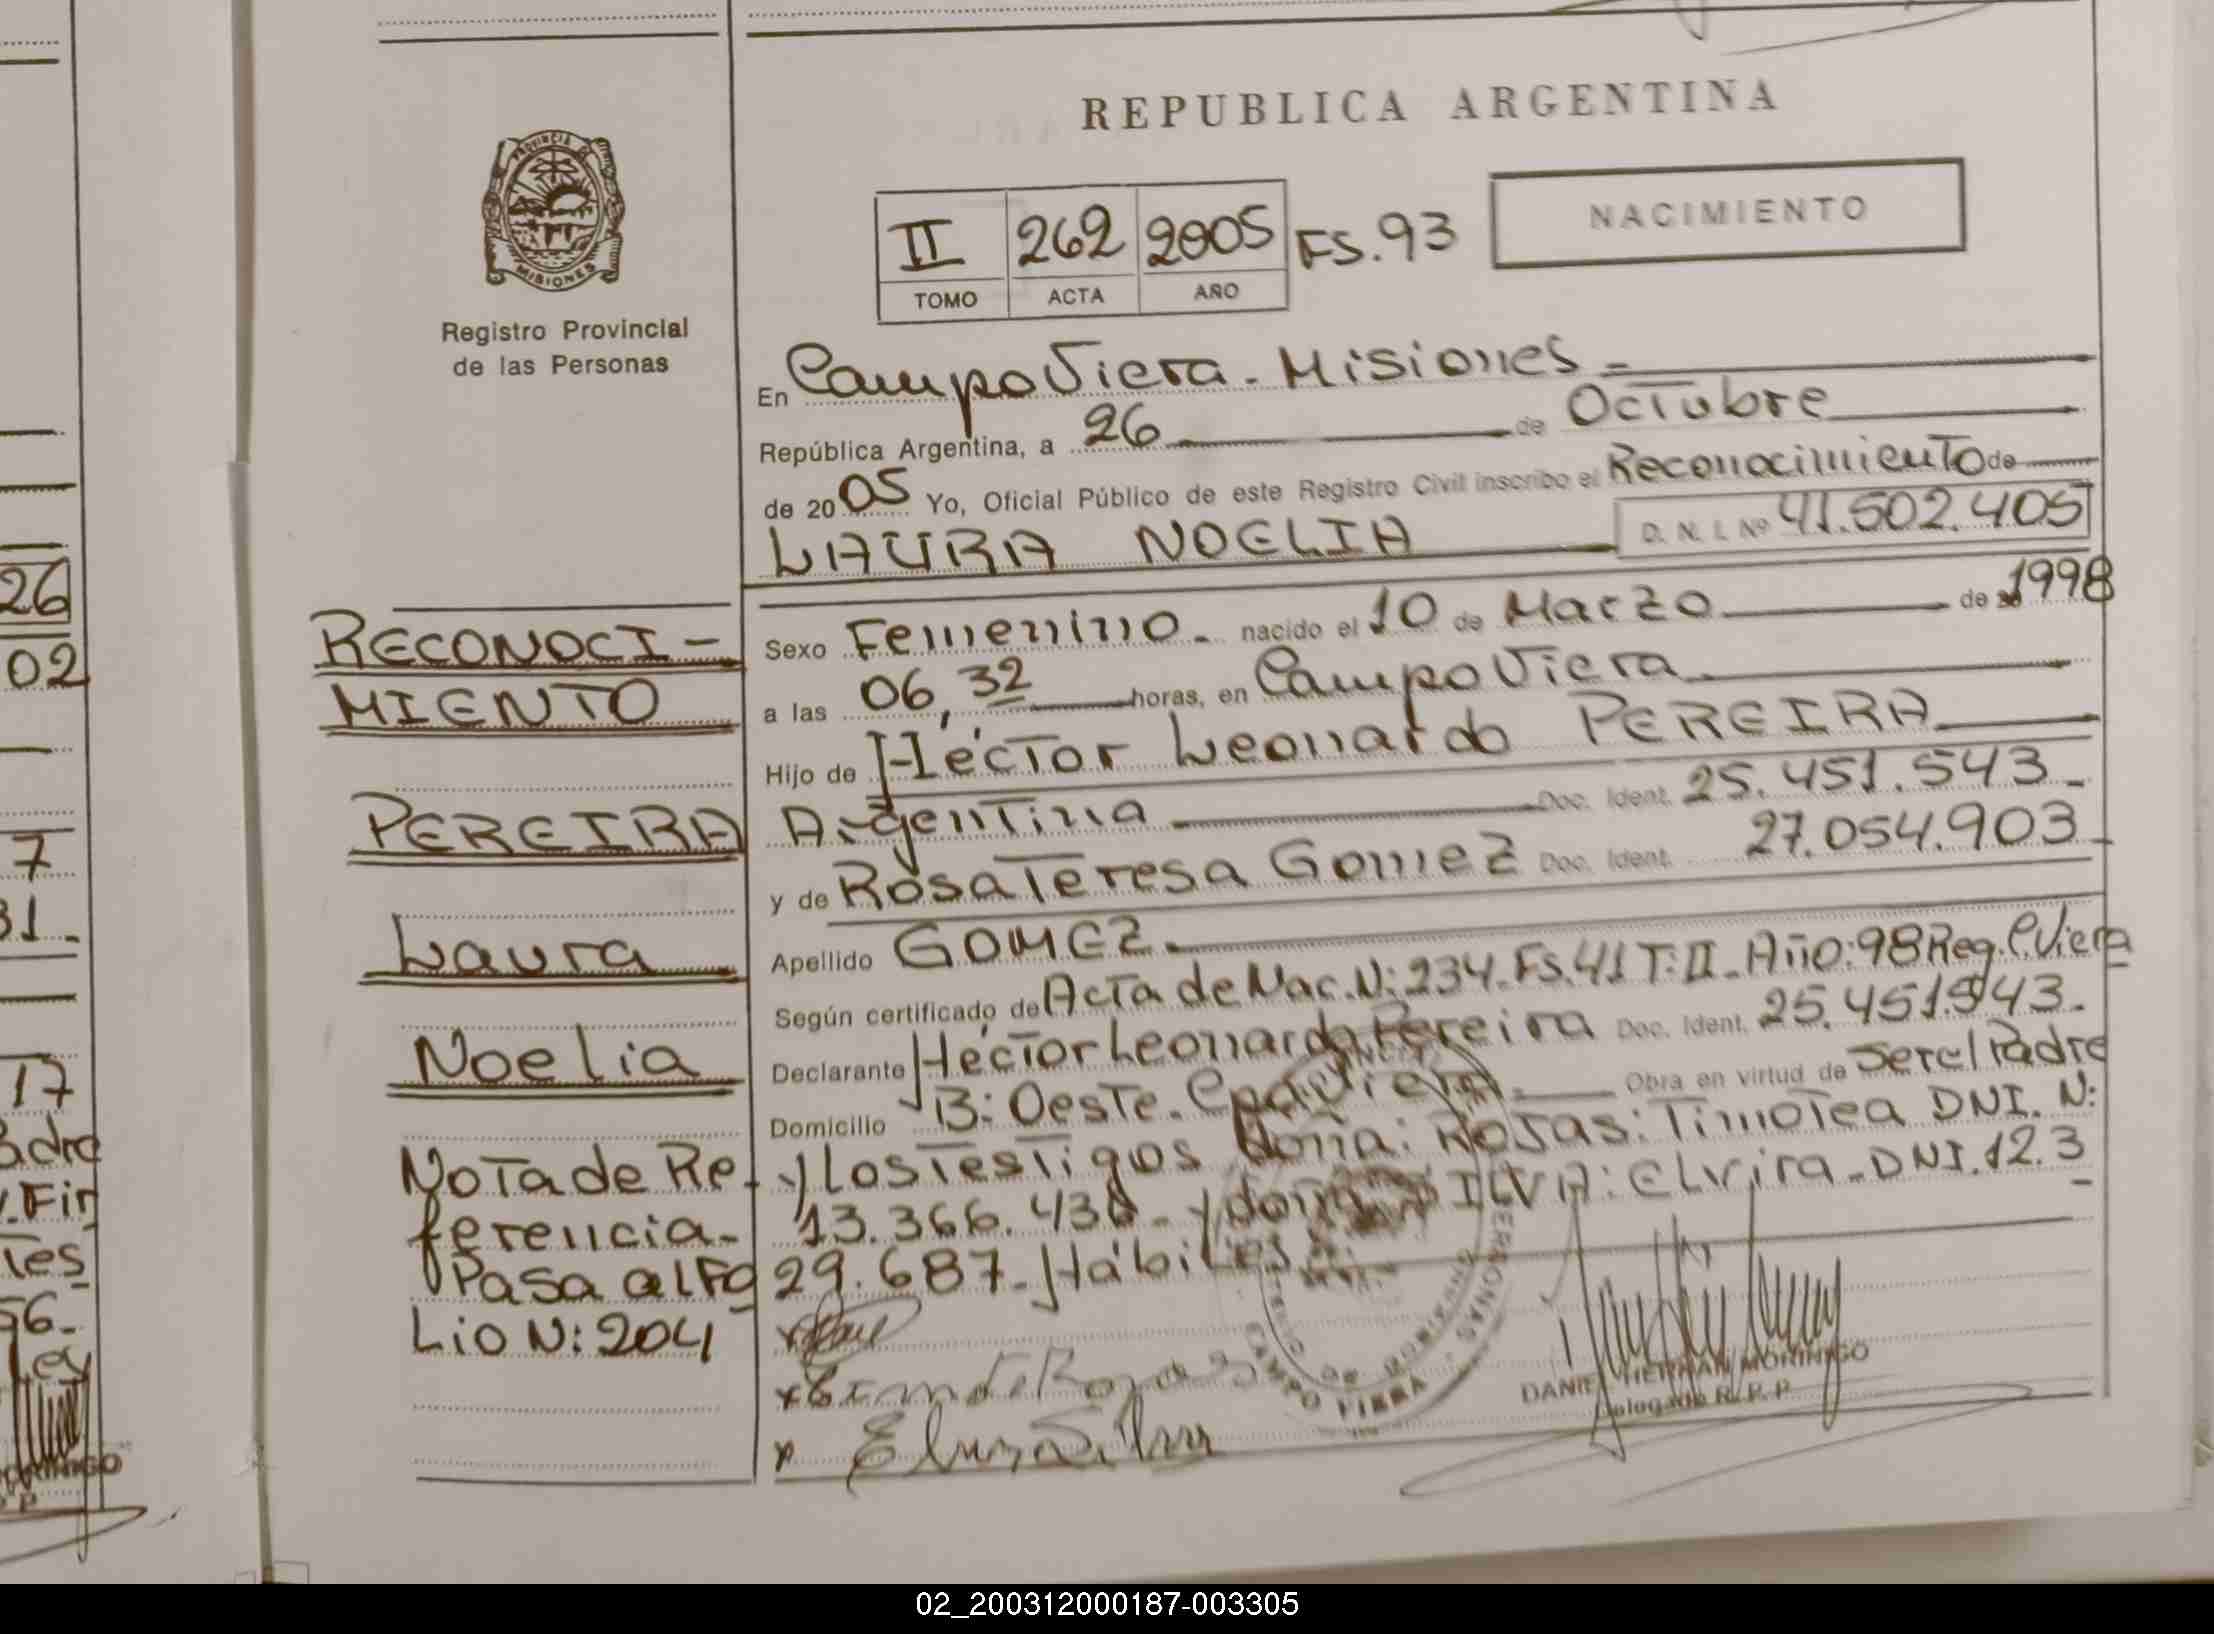 REPUBLICA ARGENTINA
PROVINCIA DE
MISIONES
Registro Provincial
de las Personas
II 262 2005 FS.93
TOMO ACTA AÑO
NACIMIENTO
En Campo Viera - Misiones
República Argentina, a 26 de Octubre
de 2005 Yo, Oficial Público de este Registro Civil inscribo el Reconocimiento de
LAURA NOELIA D. N. I. Nº 41.502.405
Sexo Femenino - nacido el 10 de Marzo de 1998
a las 06, 32 horas, en Campo Viera
Hijo de Héctor Leonardo PEREIRA
Argentina Doc. Ident. 25.451.543
y de Rosa Teresa Gomez Doc. Ident. 27.054.903
Apellido GOMEZ
Según certificado de Acta de Nac. N: 234. FS. 41 T: II - Año: 98 Reg. C. Viera
Declarante Héctor Leonardo Pereira Doc. Ident. 25.451.543
Domicilio B: Oeste. Obra en virtud de Ser el Padre
y los Testigos Doña: ROJAS: Timotea DNI. N:
13.366. y doña ILVA: Elvira - DNI. 12.3
29.687 - Hábiles
DANIEL HERNAN MORINIGO
Delegado R. P. P.
CAMPO VIERA
RECONOCI-
MIENTO
PEREIRA
Laura
Noelia
Nota de Re-
ferencia -
Pasa al Fo
Lio N: 204
26
02
7
31
17
adre
. Fir
Tes
96
02_200312000187-003305